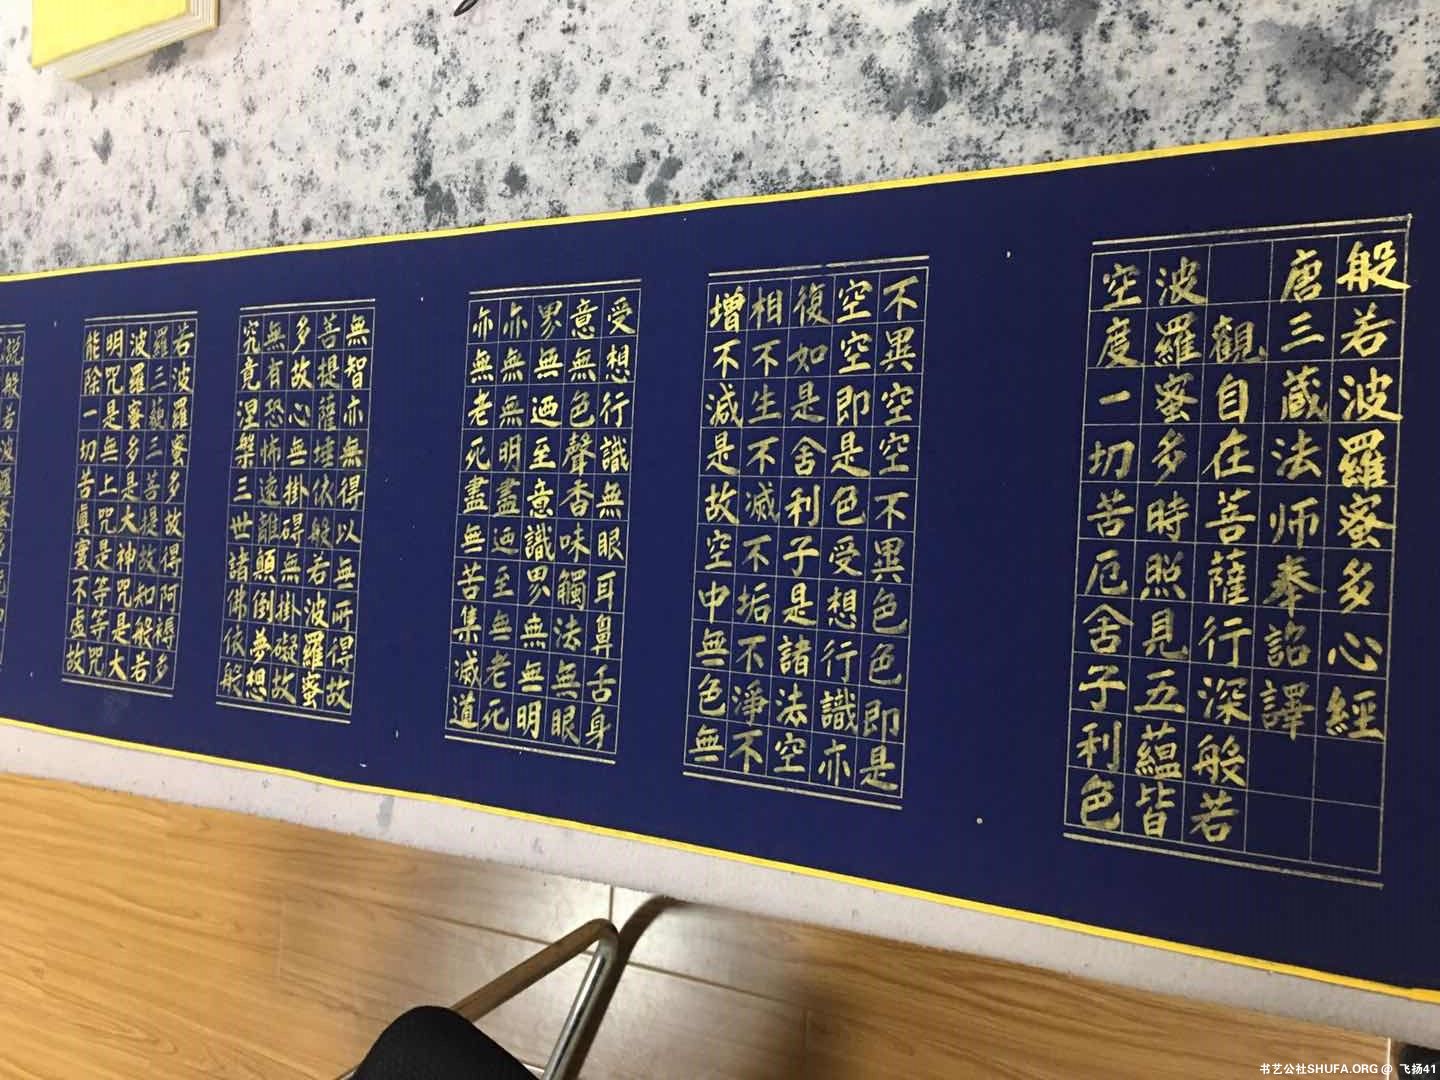 般若波羅蜜多心經
唐三藏法师奉詔譯
觀自在菩薩行深般若
波羅蜜多時照見五蘊皆
空度一切苦厄舍子利色
不異空空不異色色即是
空空即是色受想行識亦
復如是舍利子是諸法空
相不生不滅不垢不淨不
增不減是故空中無色無
受想行識無眼耳鼻舌身
意無色聲香味觸法無眼
界無迺至意識界無無明
亦無無明盡迺至無老死
亦無老死盡無苦集滅道
無智亦無得以無所得故
菩提薩埵依般若波羅蜜
多故心無掛碍無掛礙故
無有恐怖遠離顛倒夢想
究竟涅槃三世諸佛依般
若波羅蜜多故得阿褥多
羅三藐三菩提故知般若
波羅蜜多是大神咒是大
明咒是無上咒是等等咒
能除一切苦眞實不虚故
說般若波羅蜜多
书艺公社SHUFA.ORG @ 飞扬41